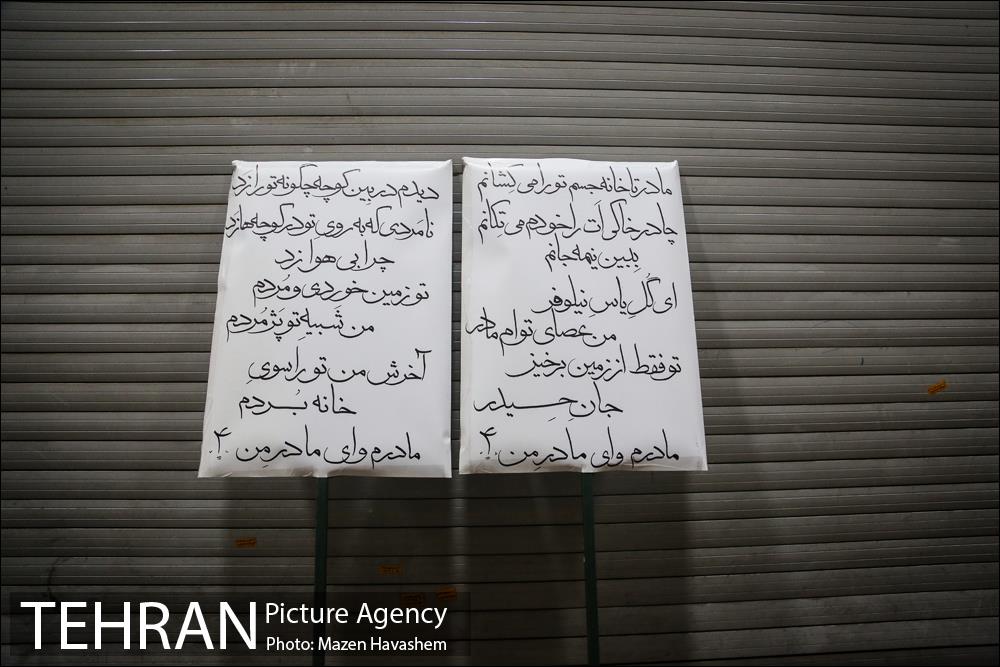 مادر تا خانه جسم تو را می کشانم
چادر خاکی اَت را خودم می تکانم
بِبین نیمه جانم
ای گُلِ یاس نیلوفر
من عصای توام مادر
تو فقط از زمین برخیز
جانِ حِیدر
مادرم وای مادرِ من ۴
دیدم در بِین کوچه چگونه تو را زد
نامَردی که به روی تو در کوچه ها زد
چرا بی هوا زد
تو زمین خوردی و مُردم
من شَبیهِ تو پَژمُردم
آخرش من تو را سویِ
خانه بُردم
مادرم وای مادرِ من ۴
TEHRAN Picture Agency
Photo: Mazen Havashem